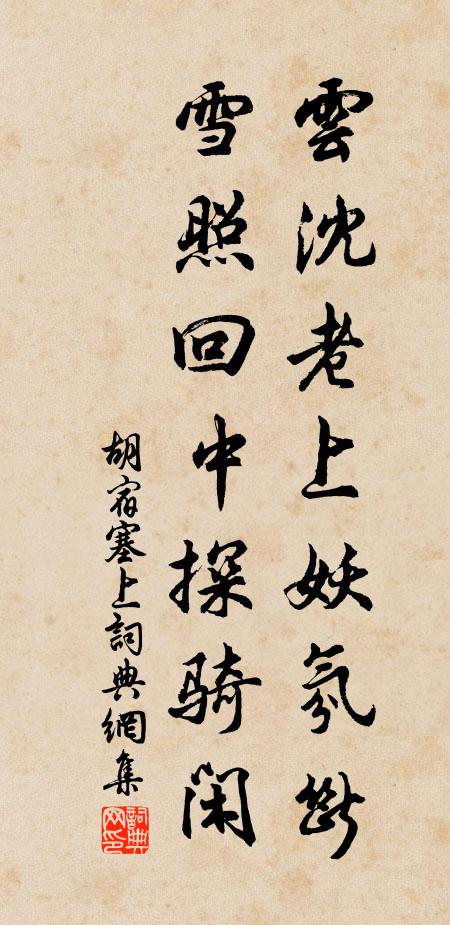 雲沈老上妖氛斷
雪照回中探騎閑
胡宿塞上詞典網集
詞典網印